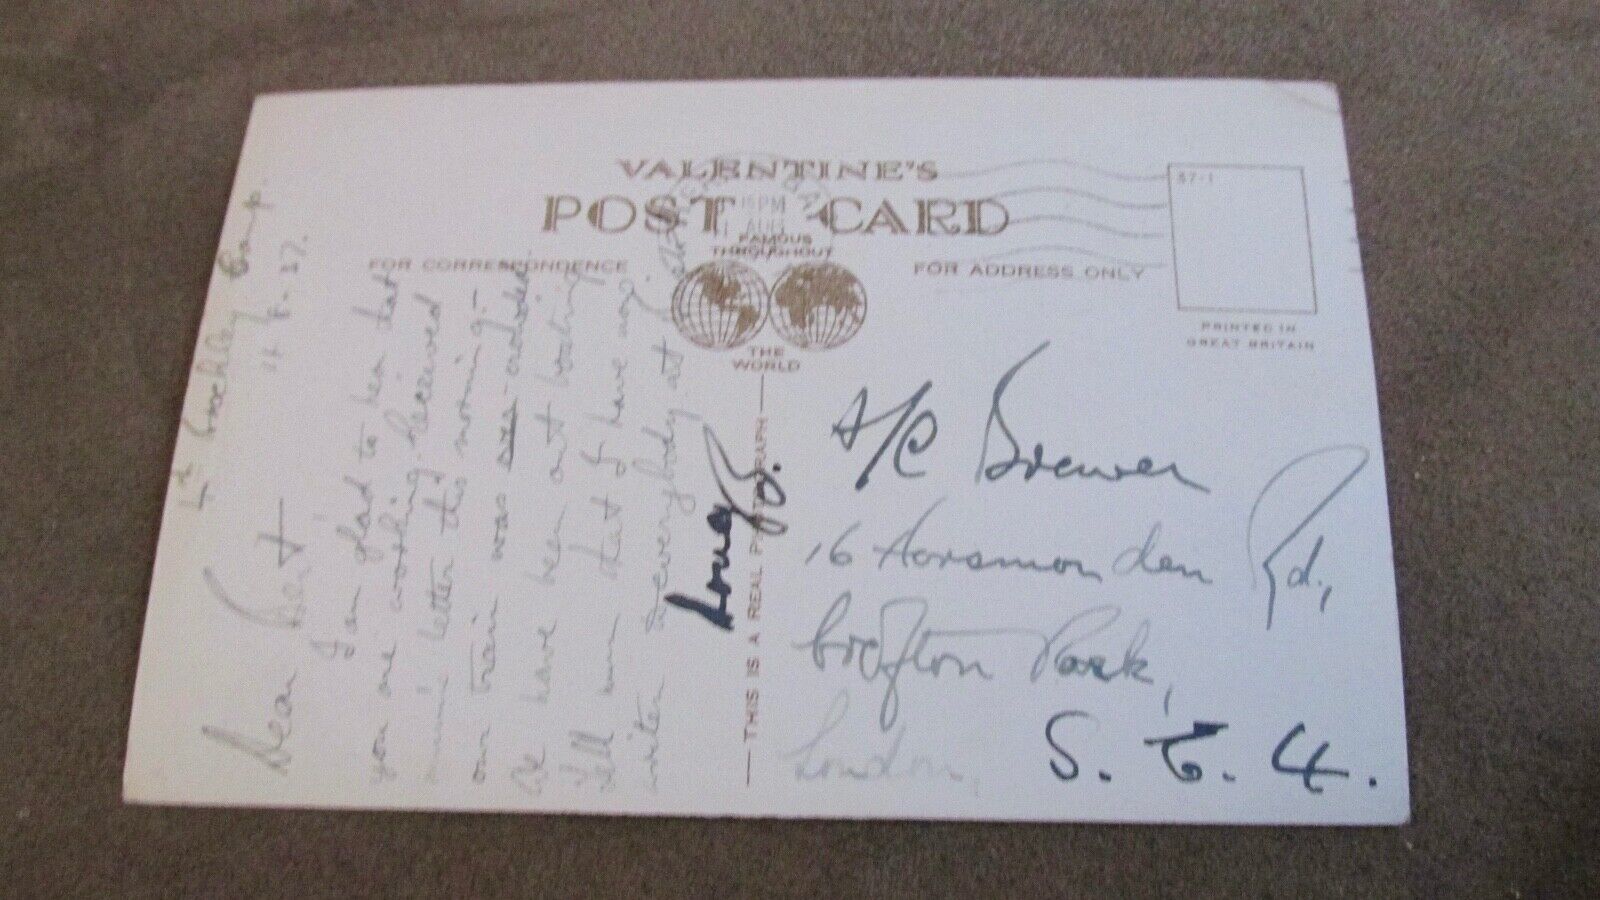 VALENTINE'S
POST CARD
15 PM
11 AUG
FAMOUS
THROUGHOUT
THE
WORLD
37-1
PRINTED IN
GREAT BRITAIN
FOR CORRESPONDENCE
FOR ADDRESS ONLY
THIS IS A REAL PHOTOGRAPH
4th Brockley Camp.
11.8.37.
Dear Bert
I am glad to hear that
you are working. Received
mum's letter this morning.-
our train was
We have been out boating
Tell mum that I have
written to everybody at
A/C Brewer
16 Horsmonden Rd,
Crofton Park,
London,
S. E. 4.